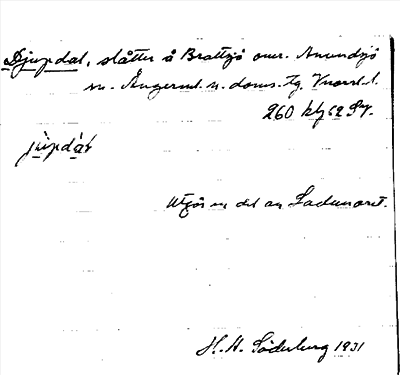 Djupdal, slåtter å Brattsjö omr. Anundsjö
sn. Ångerml. n. doms. tg. Vnorrl. l.
260 kbf 62 Sy.
jùpdàɫ
Utgör en del av Ladumoret.
H. H. Söderberg 1931